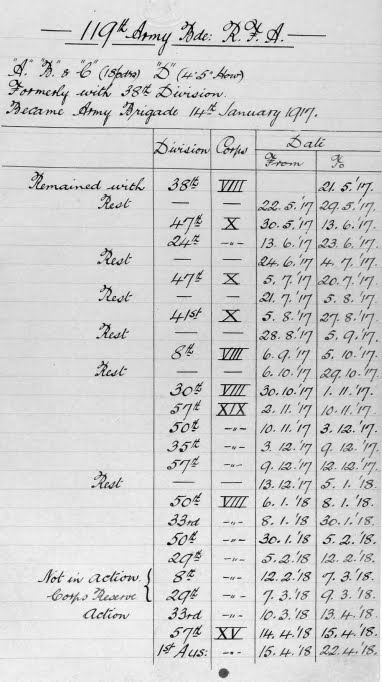 119th Army Bde: R.F.A.
"A" "B" & "C" (18pdrs) "D" (4·5" How)
Formerly with 38th Division.
Became Army Brigade 14th January 1917.
Date
Division Corps From To
Remained with 38th VIII 21.5.'17
Rest — — 22.5.'17 29.5.'17
47th X 30.5.'17 13.6.'17
24th -„- 13.6.'17 23.6.'17
Rest — — 24.6.'17 4.7.'17
47th X 5.7.'17 20.7.'17
Rest — — 21.7.'17 5.8.'17
41st X 5.8.'17 27.8.'17
Rest — — 28.8.'17 5.9.'17
8th VIII 6.9.'17 5.10.'17
Rest — — 6.10.'17 29.10.'17
30th VIII 30.10.'17 1.11.'17
57th XIX 2.11.'17 10.11.'17
50th -„- 10.11.'17 3.12.'17
35th -„- 3.12.'17 9.12.'17
57th -„- 9.12.'17 12.12.'17
Rest — — 13.12.'17 5.1.'18
50th VIII 6.1.'18 8.1.'18
33rd -„- 8.1.'18 30.1.'18
50th -„- 30.1.'18 5.2.'18
29th -„- 5.2.'18 12.2.'18
Not in action. { 8th -„- 12.2.'18 7.3.'18
Corps Reserve { 29th -„- 7.3.'18 9.3.'18
Action 33rd -„- 10.3.'18 13.4.'18
57th XV 14.4.'18 15.4.'18
1st Aus: -„- 15.4.'18 22.4.'18